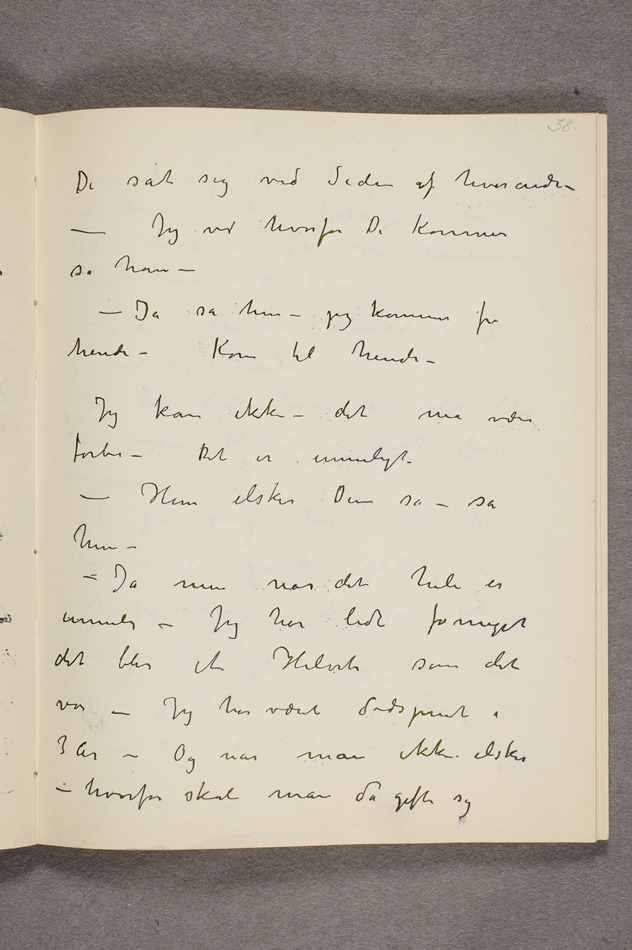 38.
De sat sig ved Siden af hverandre –
– Jeg ved hvorfor De kommer
sa han –
– Ja sa hun – jeg kommer fra
hende – Kom til hende –
Jeg kan ikke – det må være
forbi – Det er umuligt.
– Hun elsker Dem så – sa
hun –
– Ja men når det hele er
umulig – Jeg har lidt formeget
det blir et Helvete som det
var – Jeg har været dødspint i
3 År – Og når man ikke elsker
– hvorfor skal man da gifte sig